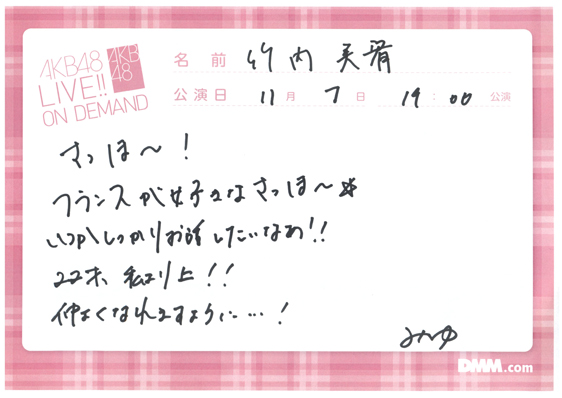 AKB48
LIVE!!
ON DEMAND
AKB
48
名前 竹内美宥
公演日 11月7日 19:00公演
さっほ〜!
フランスが好きなさっほ〜☆
いつかしっかりお話したいなぁ!!
22才、私より上!!
仲よくなれますように…!
みゆ
DMM.com